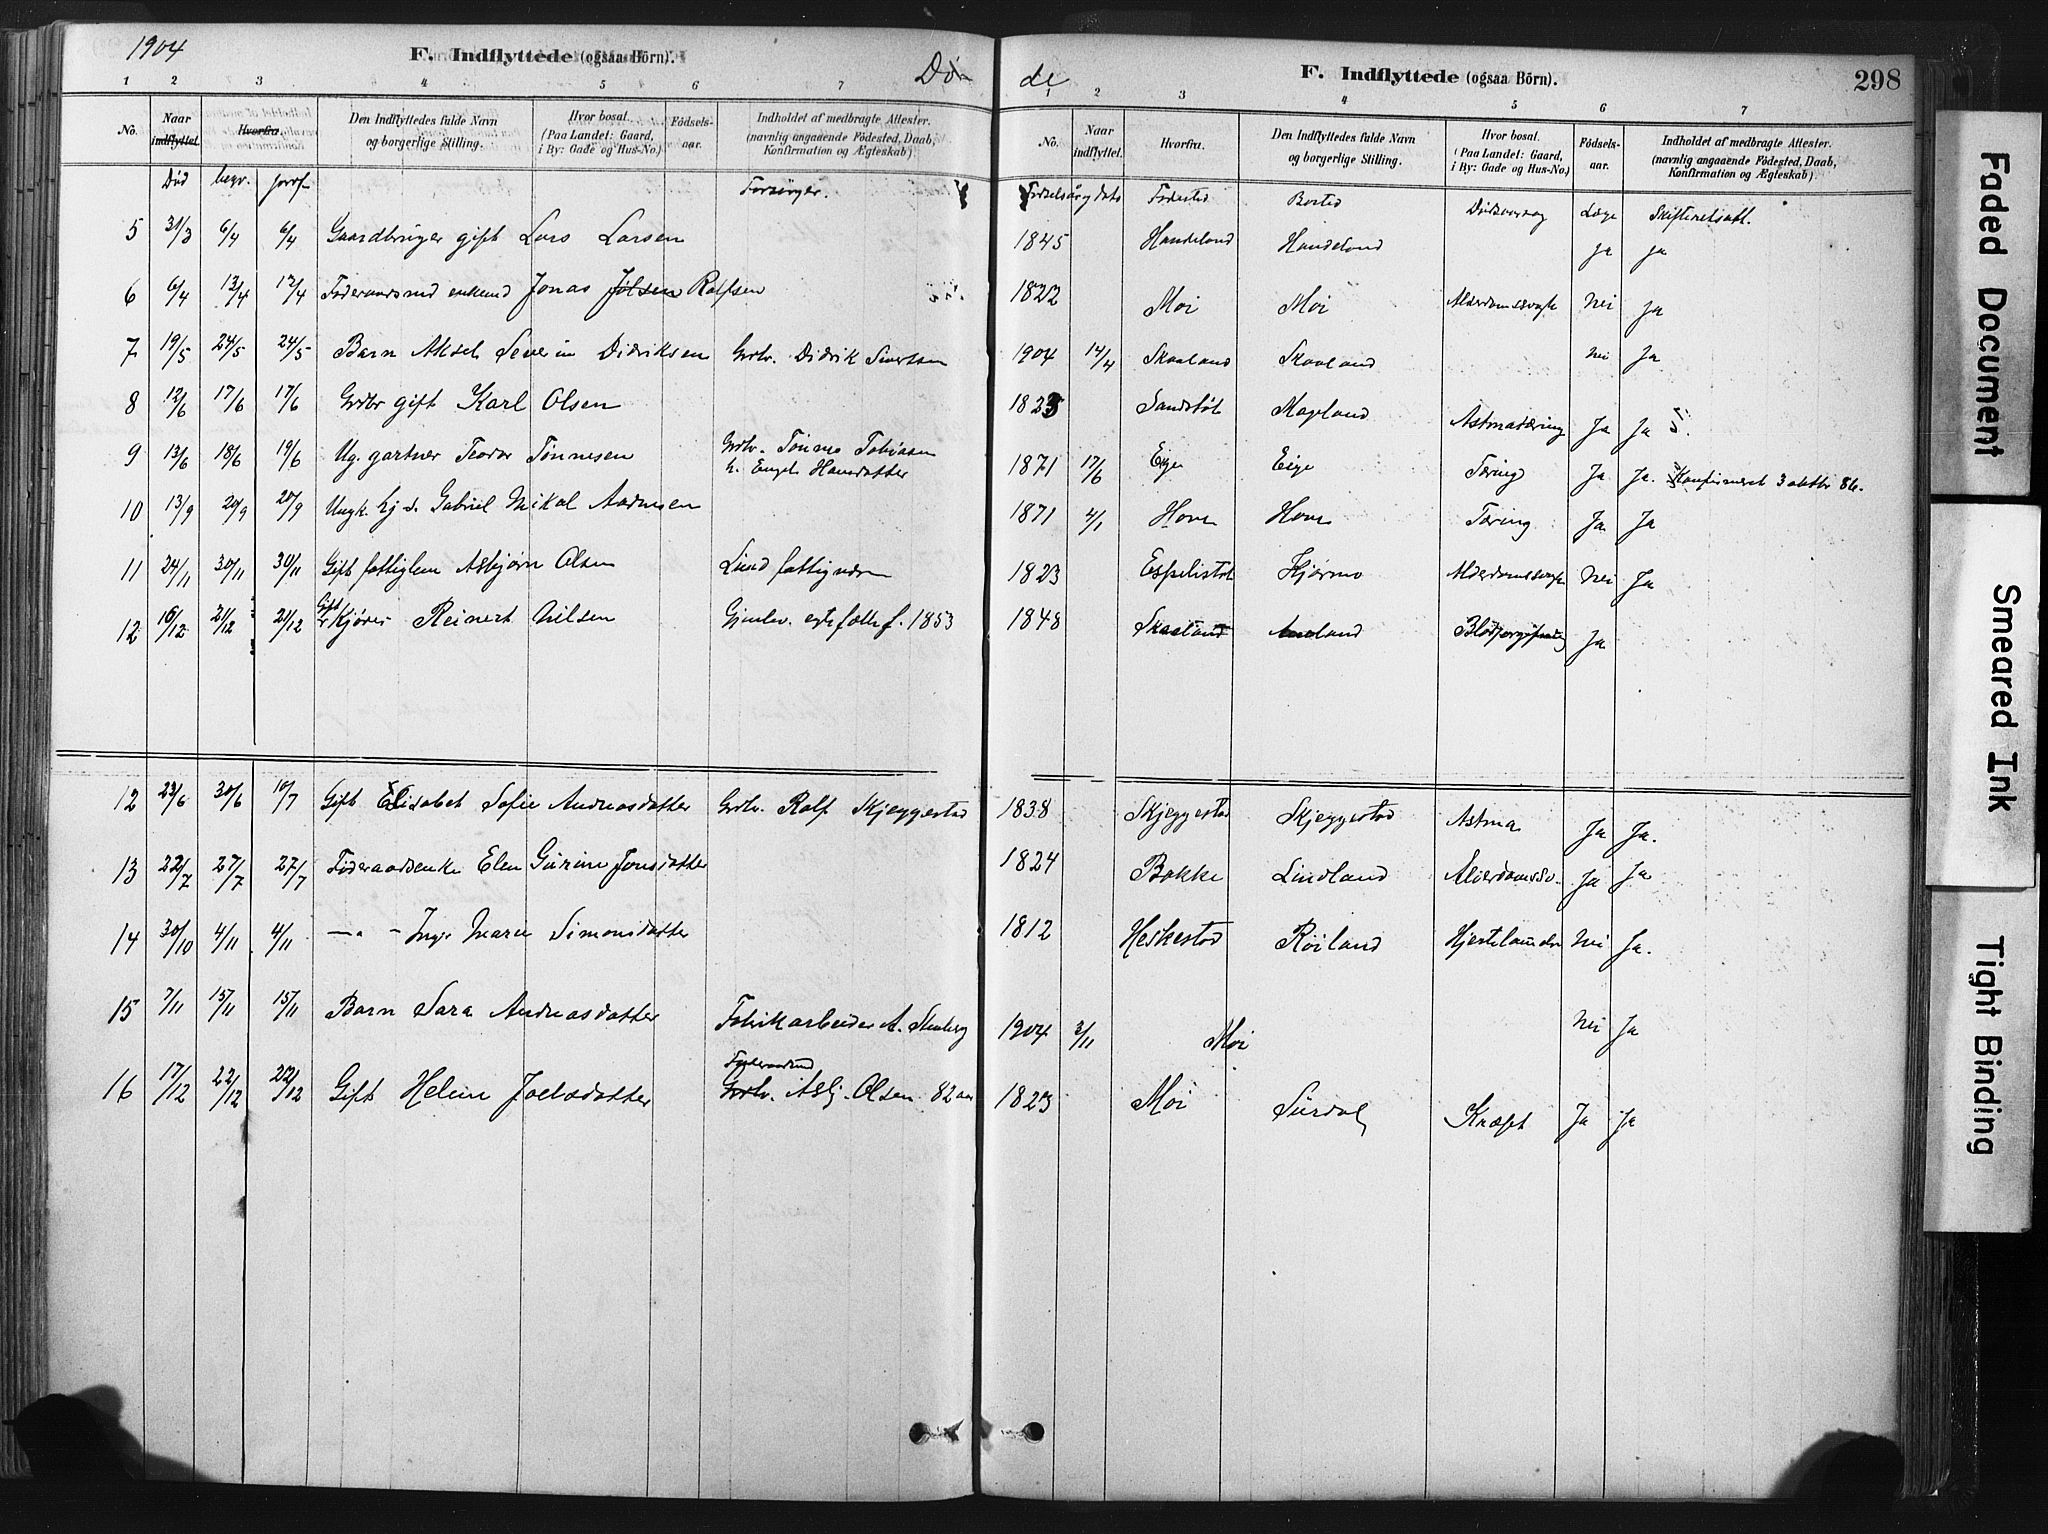 1904
F. Indflyttede (ogsaa Börn).
Dö-
1 2 3 4 5 6 7
No. Naar indflyttet. Hvorfra. Den Indflyttedes fulde Navn og borgerlige Stilling. Hvor bosat. (Paa Landet: Gaard, i By: Gade og Hus-No.) Födsels-aar. Indholdet af medbragte Attester. (navnlig angaaende Födested, Daab, Konfirmation og Ægteskab).
Død begr. jordf. Forsörger.
5 31/3 6/4 6/4 Gaardbruger gift Lars Larsen
6 6/4 12/4 12/4 Føderaadsmd enkemd Jonas Jölsen Rolfsen
7 19/5 24/5 24/5 Barn Aksel Severin Didriksen Grdbr. Didrik Sivertsen
8 12/6 17/6 17/6 Grdbr gift Karl Olsen
9 13/6 18/6 19/6 Ug. gartner Teodor Tönnesen Grdbr. Tönnes Tobiasen
h. Engel Hansdatter
10 13/9 20/9 20/9 Ungk. hj d. Gabriel Mikal Aadnesen
11 24/11 30/11 30/11 Gift fattiglem Asbjørn Olsen Lund fattigvæsen
12 16/12 21/12 21/12 Gift Kjører Reinert Nilsen 1853
12 23/6 30/6 10/7 Gift Elisabet Sofie Andreasdatter Grdbr. Rolf Skjeggestad
13 22/7 27/7 27/7 Føderaadsenke Elen Gurine Jonsdatter
14 30/10 4/11 4/11 —"— Inger Marie Simonsdatter
15 7/11 15/11 15/11 Barn Sara Andreasdatter Fabrikarbeider A. Stenberg
16 17/12 22/12 22/12 Gift Helene Joelsdatter Føderaadsmd Grdbr. Asbj. Olsen 82 aar
de
F. Indflyttede (ogsaa Börn).
298
1 2 3 4 5 6 7
No. Naar indflyttet. Hvorfra. Den Indflyttedes fulde Navn og borgerlige Stilling. Hvor bosat. (Paa Landet: Gaard, i By: Gade og Hus-No.) Födsels-aar. Indholdet af medbragte Attester. (navnlig angaaende Födested, Daab, Konfirmation og Ægteskab).
Fødselsår og dato Fødested Bosted Dødsaarsag Læge Skifteretsatt.
1845 Haudeland Haudeland ja ja
1822 Moi Moi Alderdomssvagh nei ja
1904 14/4 Skaaland Skaaland nei Ja
1825 Sandstöl Mageland Astmatæring Ja Ja 5.
1871 17/6 Eige Eige Tæring Ja Ja. Konfirmeret 3 oktbr 86.
1871 4/1 Hove Hove Tæring Ja Ja
1823 Espelistöl Kjørmo Alderdomssvagh nei Ja
1848 Skaaland Blodforgiftning Ja
1838 Skjeggestad Skjeggestad Astma Ja Ja.
1824 Bakke Lindland Alderdomssv. Ja Ja
1812 Heskestad Røiland Hjertelamelse Nei Ja.
1904 3/11 Moi Nei Ja
1823 Moi Surdal Kræft Ja Ja
Faded Document
Smeared Ink
Tight Binding